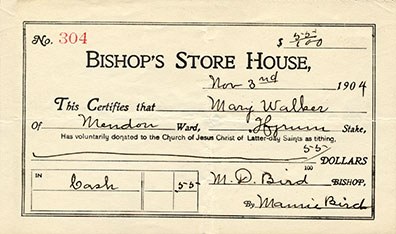 No. 304 $ 55/100
BISHOP'S STORE HOUSE,
Nov 3rd 1904
This Certifies that Mary Walker
Of Mendon Ward, Hyrum Stake,
Has voluntarily donated to the Church of Jesus Christ of Latter-day Saints as tithing,
55/100 DOLLARS
IN Cash 55 M. D. Bird BISHOP,
By Mamie Bird